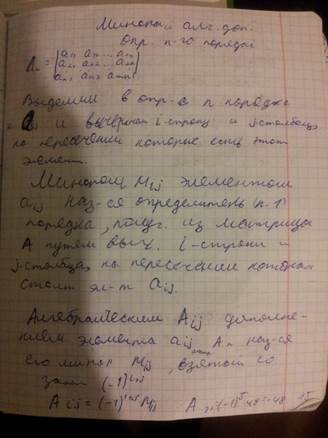 Минор и алг. доп.
опр. n-го порядка
a₁₁ a₁₂ ... a₁ₙ
a₂₁ a₂₂ ... a₂ₙ
Выделим в опр-е n порядка
и вычеркнем i-строку и j столбец
на пересечении которых есть этот
элемент.
Минором Mij элементом
aij наз-ся определитель (n-1)
порядка, получ. из матрицы
A путём выч. i-строки и
j столбца, на пересечении которых
стоит эл-т aij.
Алгебраическим Aij дополне-
нием элемента aij наз-ся
его минор Mij, взятый со
знак (-1)^i+j
Aij = (-1)^i+j Mij